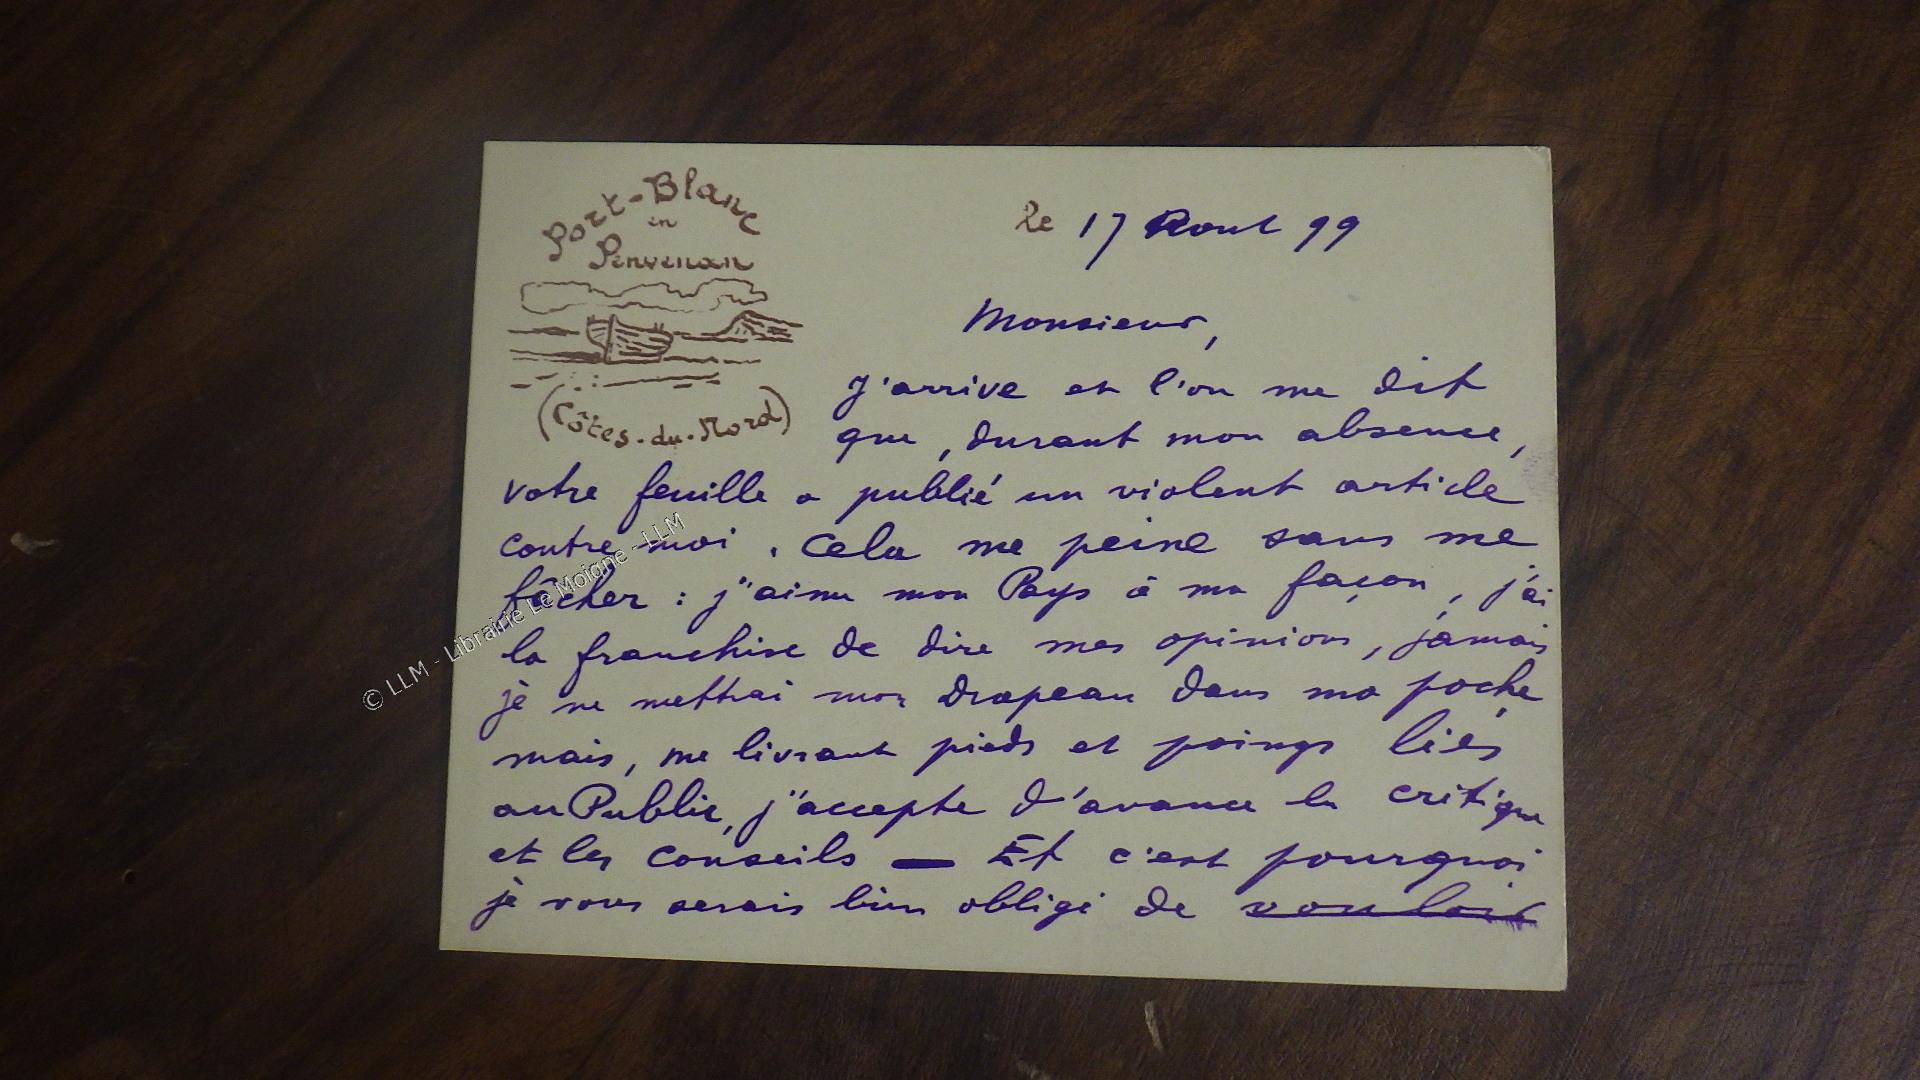 Port-Blanc
en
Penvenan
(Côtes-du-Nord)
le 17 Aout 99
Monsieur,
J'arrive et l'on me dit
que, durant mon absence,
votre feuille a publié un violent article
contre moi. Cela me peine sans me
fâcher : j'aime mon Pays à ma façon, j'ai
la franchise de dire mes opinions, jamais
je ne mettrai mon drapeau dans ma poche
mais, me livrant pieds et poings liés
au Public, j'accepte d'avance la critique
et les conseils — Et c'est pourquoi
je vous serais bien obligé de vouloir
© LLM - Librairie Le Moigne - LLM